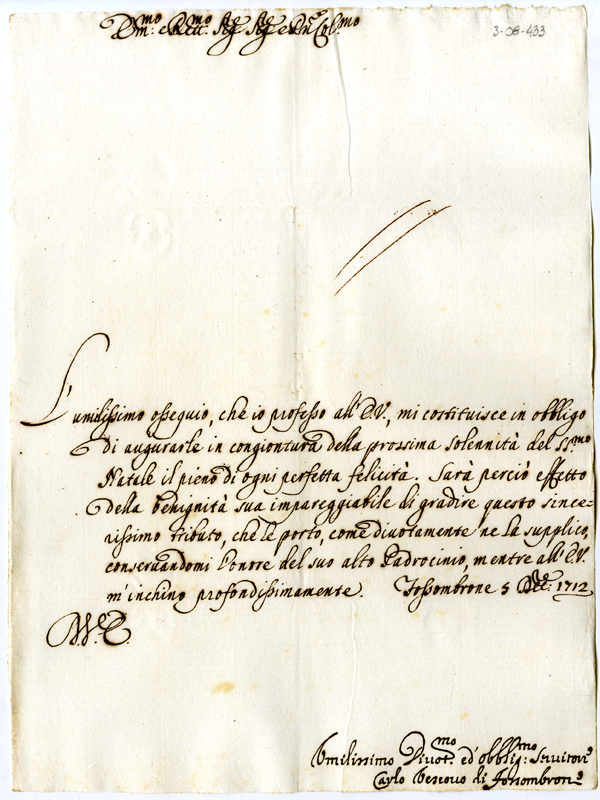 Em:mo e Rev:mo Sig.r Sig.r e Pron Col:mo
3-08-433
L'umilissimo ossequio, che io professo all'E.V., mi costituisce in obbligo
di augurarle in congiontura della prossima Solennità del SS.mo
Natale il pieno di ogni perfetta felicità. Sarà perciò effetto
della benignità sua impareggiabile di gradire questo since-
rissimo tributo, che le porto, come divotamente ne la supplico,
conservandomi l'onore del suo alto Padrocinio, mentre all'E.V.
m'inchino profondissimamente. Fossombrone 5 Xbre: 1712
Umilissimo Divot:mo ed obblig:mo Servitore
Carlo Vescovo di Fossombrone